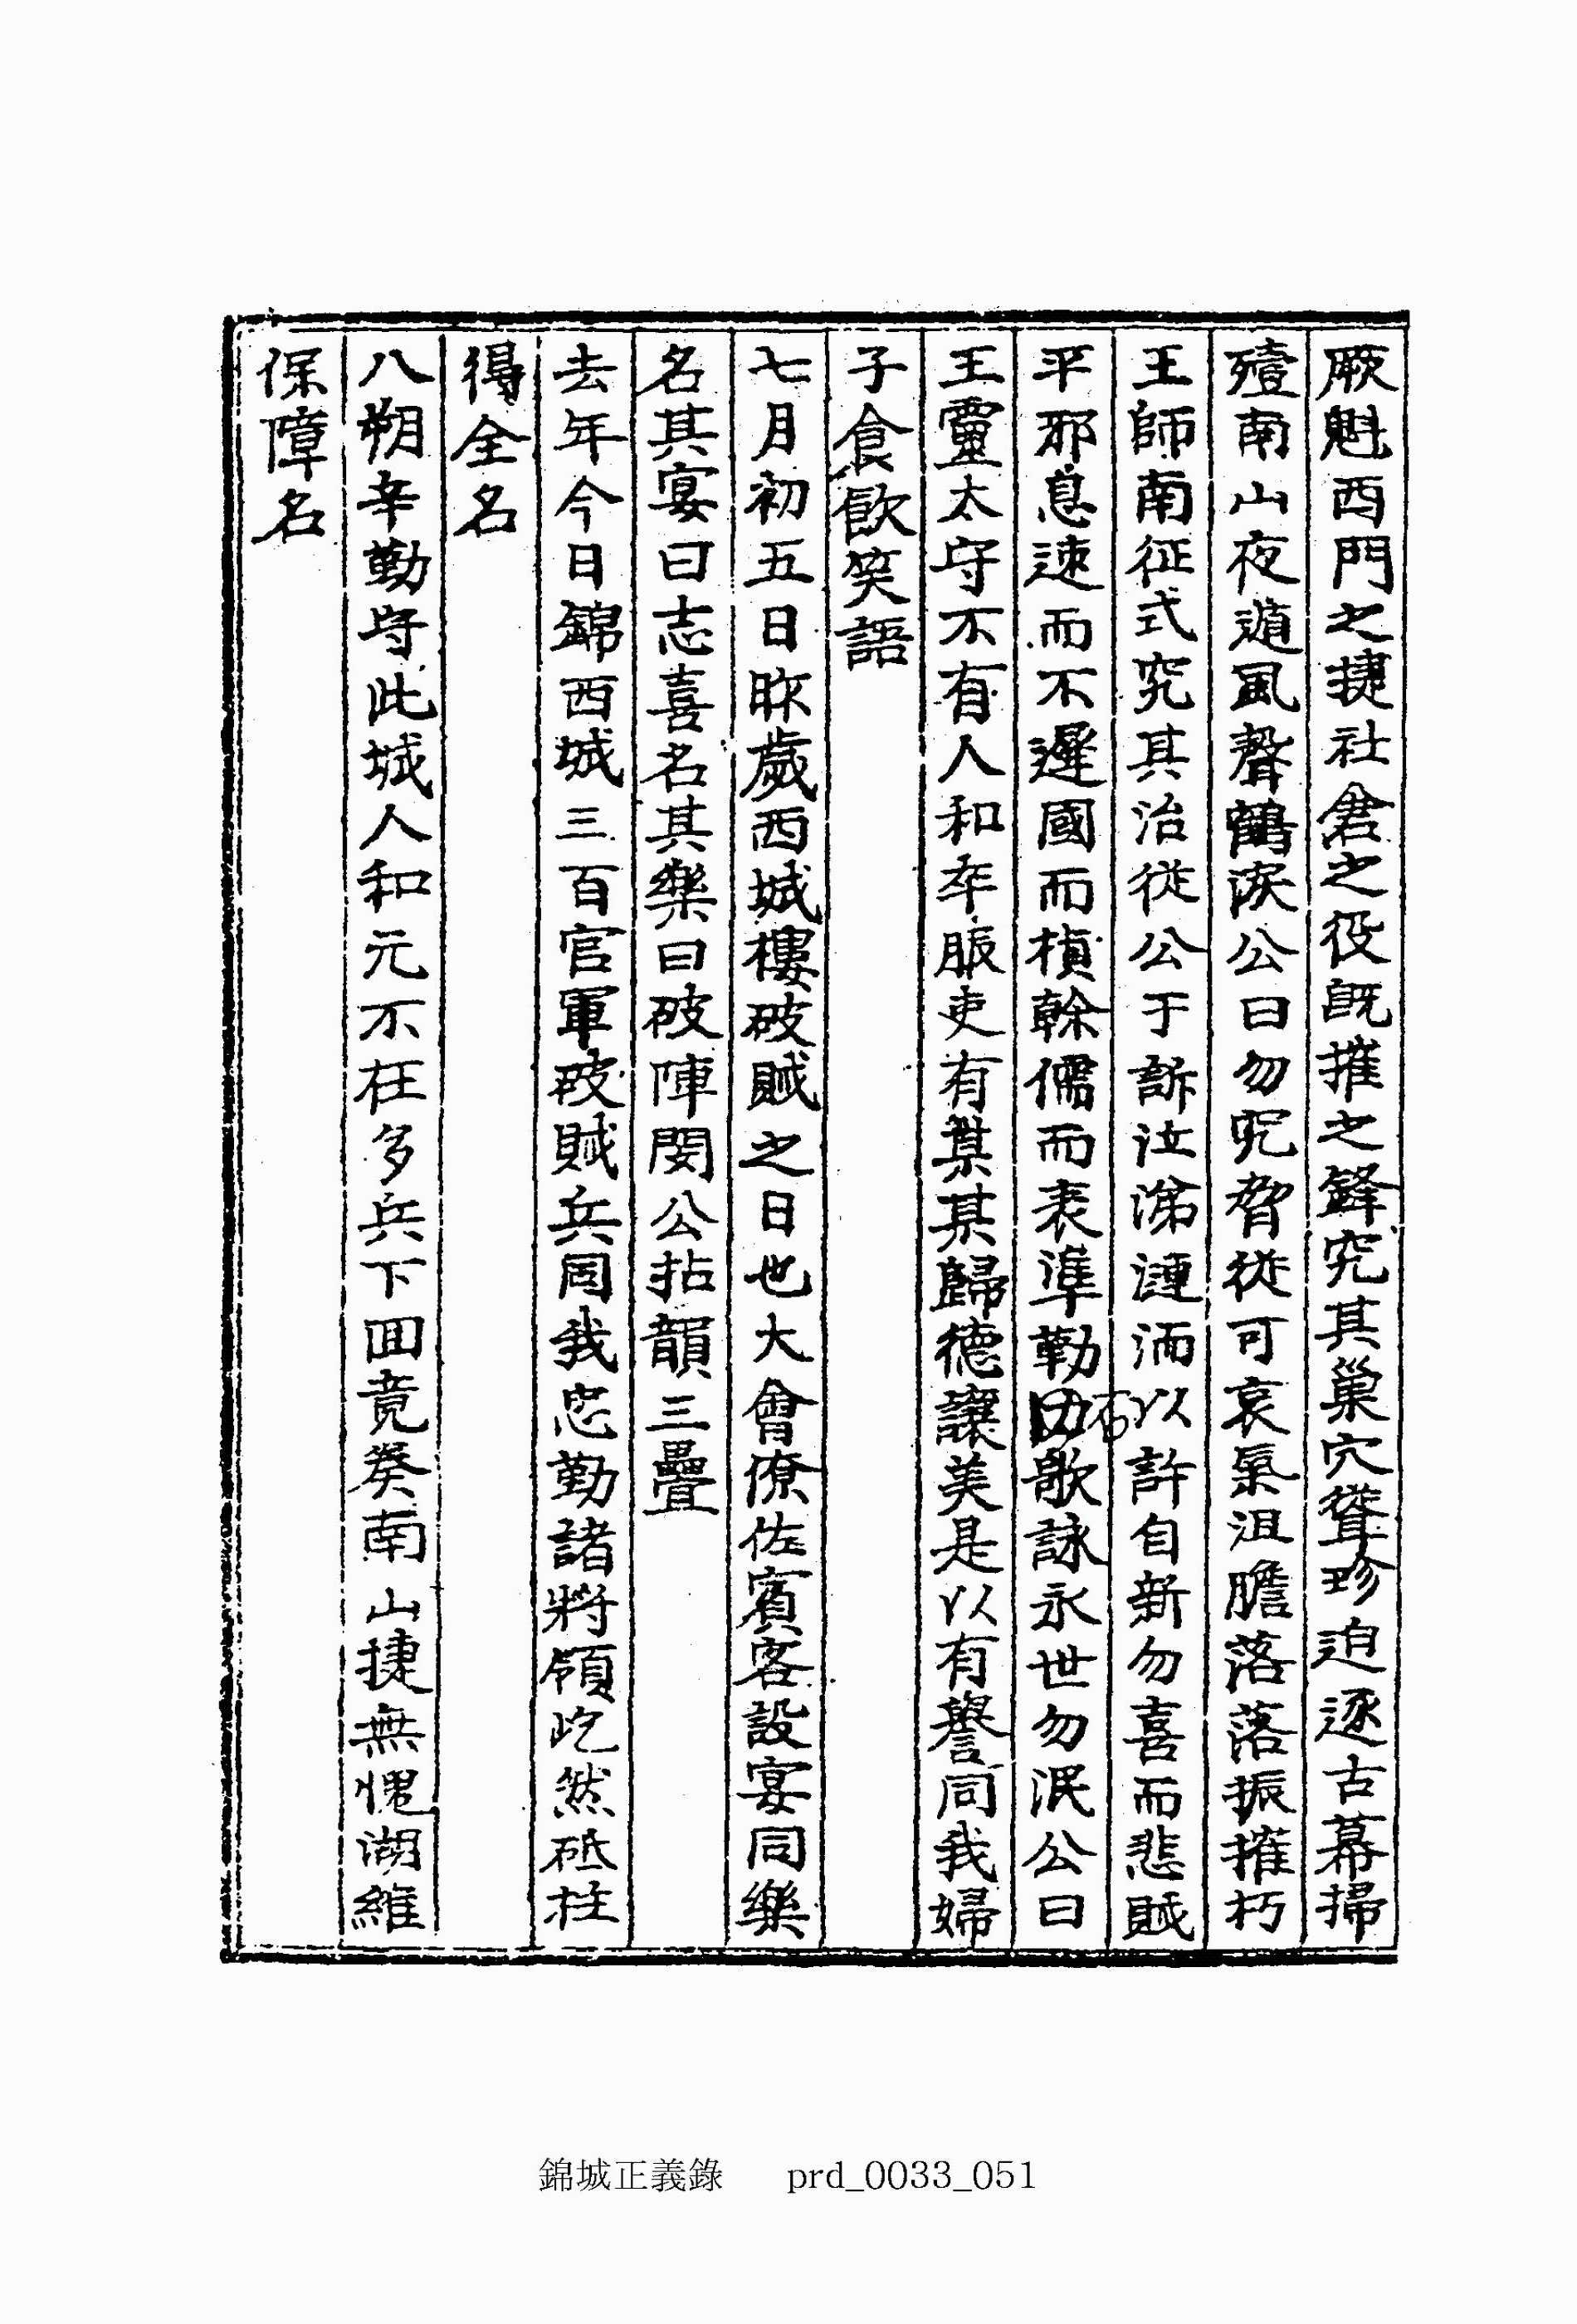 厥魁西門之捷社倉之役旣摧之鋒究其巢穴聳珍迫逐古幕掃
殪南山夜遁風聲鶴淚公曰勿咒脅從可哀氣沮膽落落振摧朽
王師南征式究其治從公于訴泣涕漣洏以許自新勿喜而悲賊
平邪息速而不遲國而楨榦儒而表準勒石歌詠永世勿泯公曰
王靈太守不有人和卒賬吏有某某歸德讓美是以有譽同我婦
子食飮笑語
七月初五日昨歲西城樓破賊之日也大會僚佐賓客設宴同樂
名其宴曰志喜名其樂曰破陣閔公拈韻三疊
去年今日錦西城三百官軍破賊兵同我忠勤諸將領屹然砥柱
得全名
八朔辛勤守此城人和元不在多兵下囬竟癸南山捷無愧湖維
保障名
錦城正義錄 prd_0033_051